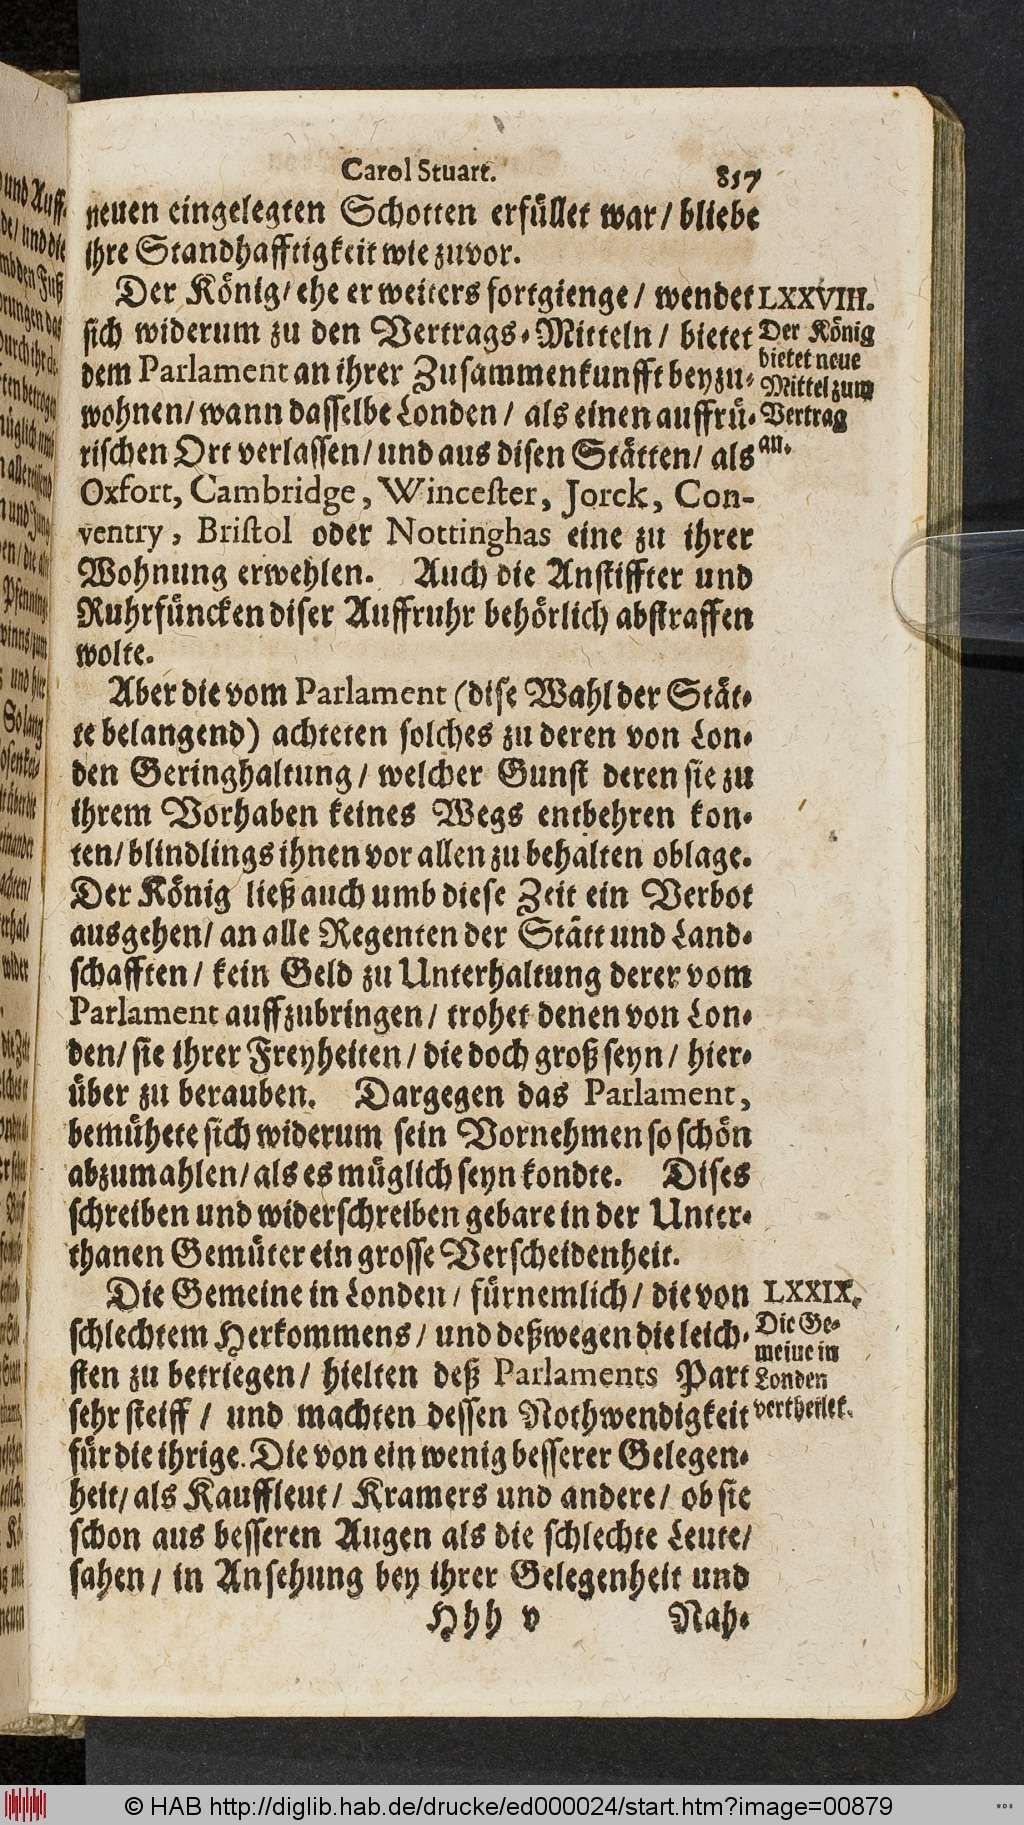 Carol Stuart. 857
neuen eingelegten Schotten erfüllet war / bliebe
ihre Standhafftigkeit wie zuvor.
Der König / ehe er weiters fortgienge / wendet
sich widerum zu den Vertrags-Mitteln / bietet
dem Parlament an ihrer Zusammenkunfft beyzu-
wohnen / wann dasselbe Londen / als einen auffrü-
rischen Ort verlassen / und aus disen Stätten / als
Oxfort, Cambridge, Wincester, Jorck, Con-
ventry, Bristol oder Nottinghas eine zu ihrer
Wohnung erwehlen. Auch die Anstiffter und
Ruhrfüncken diser Auffruhr behörlich abstraffen
wolte.
LXXVIII.
Der König
bietet neue
Mittel zum
Vertrag
an.
Aber die vom Parlament (dise Wahl der Stät-
te belangend) achteten solches zu deren von Lon-
den Geringhaltung / welcher Gunst deren sie zu
ihrem Vorhaben keines Wegs entbehren kon-
ten / blindlings ihnen vor allen zu behalten oblage.
Der König ließ auch umb diese Zeit ein Verbot
ausgehen / an alle Regenten der Stätt und Land-
schafften / kein Geld zu Unterhaltung derer vom
Parlament auffzubringen / trohet denen von Lon-
den / sie ihrer Freyheiten / die doch groß seyn / hier-
über zu berauben. Dargegen das Parlament,
bemühete sich widerum sein Vornehmen so schön
abzumahlen / als es müglich seyn kondte. Dises
schreiben und widerschreiben gebare in der Unter-
thanen Gemüter ein grosse Verscheidenheit.
Die Gemeine in Londen / fürnemlich / die von
schlechtem Herkommens / und deßwegen die leich-
sten zu betriegen / hielten deß Parlaments Part
sehr steiff / und machten dessen Nothwendigkeit
für die ihrige. Die von ein wenig besserer Gelegen-
heit / als Kauffleut / Kramers und andere / ob sie
schon aus besseren Augen als die schlechte Leute /
sahen / in Ansehung bey ihrer Gelegenheit und
LXXIX.
Die Ge-
meine in
Londen
vertheilet.
Hhh v Nah-
© HAB http://diglib.hab.de/drucke/ed000024/start.htm?image=00879